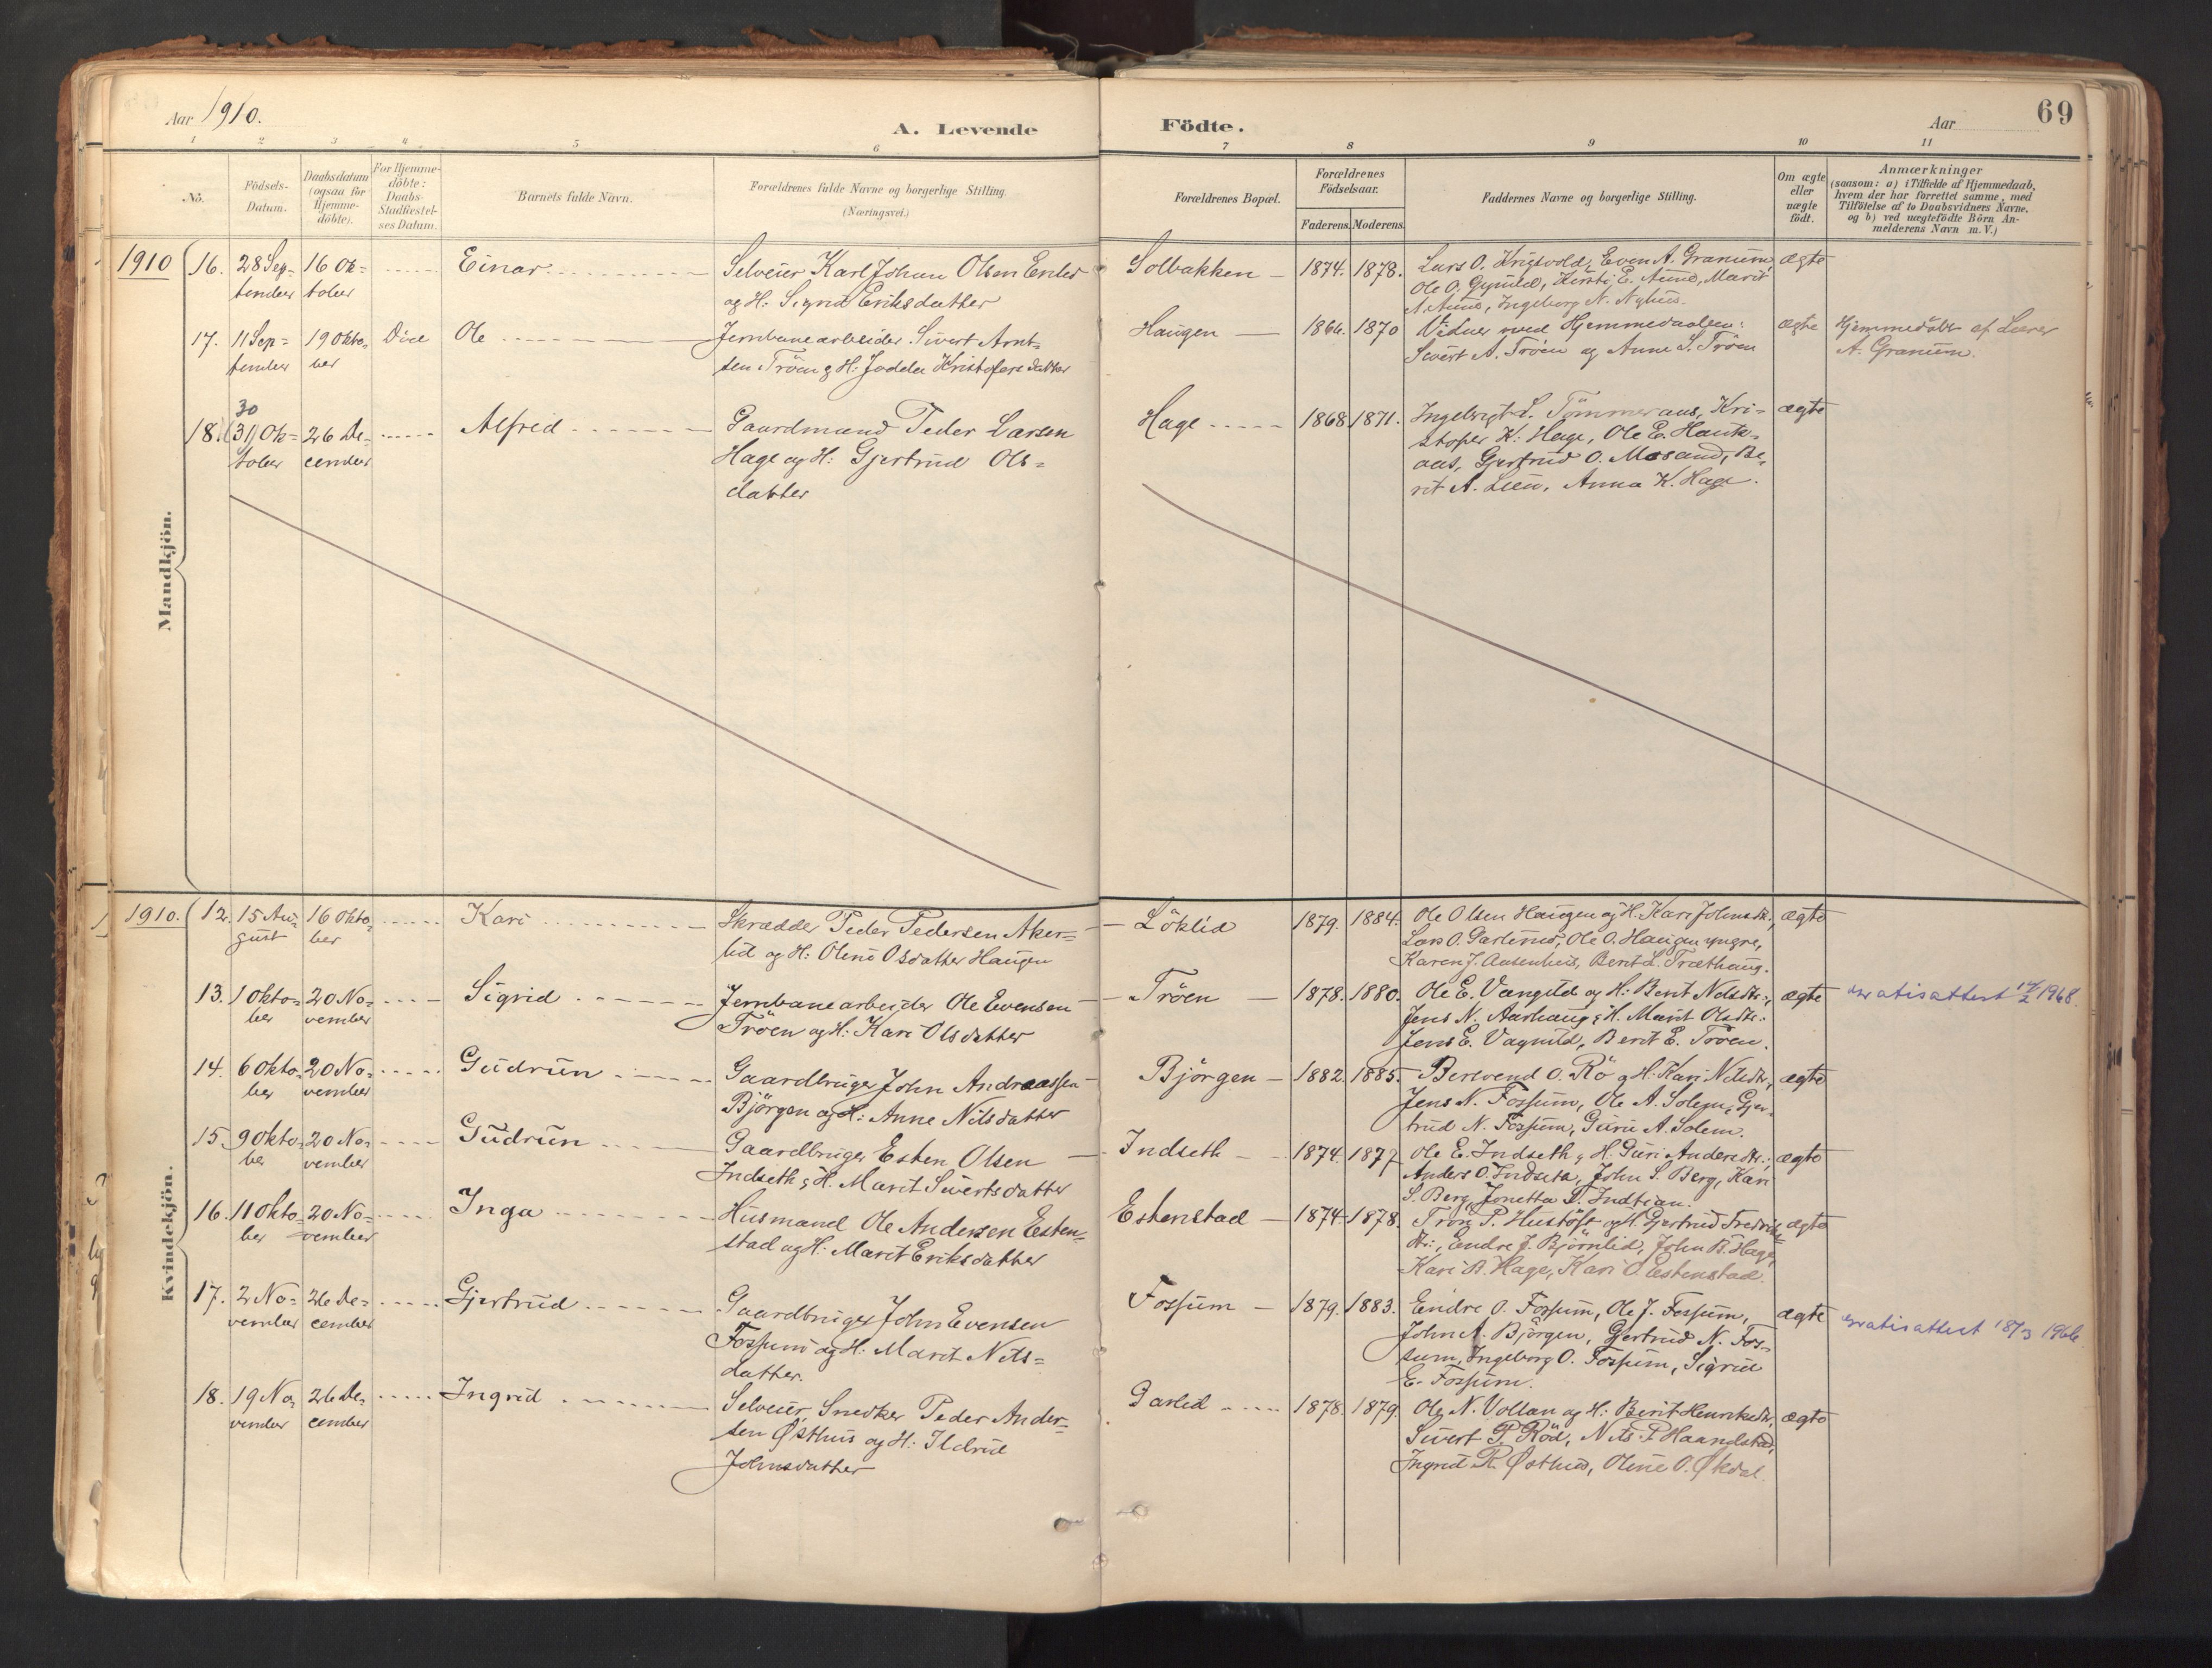 Aar 1910.
A. Levende
Födte.
Aar
69
1
2
3
4
5
6
7
8
9
10
11
No.
Födsels-
Datum.
Daabsdatum
(ogsaa för
Hjemme-
döbte).
For Hjemme-
döbte:
Daabs-
Stadfæstel-
ses Datum.
Barnets fulde Navn.
Forældrenes fulde Navne og borgerlige Stilling.
(Næringsvei.)
Forældrenes Bopæl.
Forældrenes
Födselsaar.
Faderens.
Moderens.
Faddernes Navne og borgerlige Stilling.
Om ægte
eller
uægte
födt.
Anmærkninger
(saasom: a) i Tilfælde af Hjemmedaab,
hvem der har forrettet samme, med
Tilföielse af to Daabsvidners Navne,
og b) ved uægtefödte Börn An-
melderens Navn m. V.)
Mandkjön.
1910
16.
28 Sep-
tember
16 Ok-
tober
Einar
Selveier Karl Johan Olsen
og H: Sigrid Eriksdatter
Solbakken
1874.
1878.
Lars O. Krigsvold, Even A. Granum,
Ole O. Kirsti E. Aune, Marit
A. Aune, Ingeborg N. Nyhus.
ægte
17.
11 Sep-
tember
19 Okto-
ber
Ole
Jernbanearbeider Sivert Arnt-
sen Tröen & H: Kristofersdatter
Haugen
1866.
1870
Vidner ved Hjemmedaaben:
Sivert A. Tröen og Anne S. Tröen
ægte
Hjemmedöbt af Lærer
A. Granum.
18.
30
(31) Ok-
tober
26 De-
cember
Alfred
Gaardmand Peder Larsen
Hage og H: Gjertrud Ols-
datter
Hage
1868
1871.
Ingebrigt L. Tömmeraas, Kri-
stofer K. Hage, Ole E. Hauk-
aas, Gjertrud O. Mosand, Be-
rit A. Lien, Anna K. Hage.
ægte
Kvindekjön.
1910.
12.
15 Au-
gust
16 Okto-
ber
Kari
Skrædder Peder Pedersen Aker-
lid og H: Oline Olsdatter Haugen
Löklid
1879.
1884.
Ole Olsen Haugen og H. Kari Johnsdtr.,
Lars O. Ole O. Haugen yngre,
Karen J. Berit L. Træthaug.
ægte
13.
1 Okto-
ber
20 No-
vember
Sigrid
Jernbanearbeider Ole Evensen
Tröen og H: Kari Olsdatter
Tröen
1878.
1880.
Ole E. Vangild og H: Berit Nilsdtr.,
Jens N. Aarhaug & H. Marit Olsdtr.
Jens E. Vagnild, Berit E. Tröen.
ægte
gratisattest 14/2 1968.
14.
6 Okto-
ber
20 No-
vember
Gudrun
Gaardbruger John Andreassen
Björgen og H: Anne Nilsdatter
Björgen
1882.
1885.
Berevend O. Rö & H. Kari Nilsdtr.,
Jens N. Fossum, Ole A. Solem, Gjer-
trud N. Fossum, Guru A. Solem.
ægte
15.
9 Okto-
ber
20 No-
vember
Gudrun
Gaardbruger Esten Olsen
Indseth & H. Marit Sivertsdatter
Indseth
1874.
1877
Ole E. Indseth & H. Guri Andersdtr.;
Anders O. Indseth, John S. Berg, Kari
S. Berg, Jonetta S.
ægte
16.
11 Okto-
ber
20 No-
vember
Inga
Husmand Ole Andersen Esten-
stad og H: Marit Eriksdatter
Estenstad
1874
1878.
P. Hustöft og H. Gjertrud Fredriks-
dtr:, Endre J. Björnlid, John B. Hage,
Kari B. Hage, Kari O. Estenstad.
ægte
17.
2 No-
vember
26 De-
cember
Gjertrud
Gaardbruger John Evensen
Fossum og H: Marit Nils-
datter.
Fossum
1879.
1883.
Endre O. Fossum, Ole J. Fossum,
John A. Björgen, Gjertrud N. Fos-
sum, Ingeborg O. Fossum, Sigrid
E. Fossum.
ægte
gratisattest 18/3 1966
18.
19 No-
vember
26 De-
cember
Ingrid
Selveier, Snedker Peder Ander-
sen Østhus og H: Ildrid
Johnsdatter
Garlid
1878.
1879.
Ole N. Vollan og H: Berit Henriksdtr.
Sivert P. Röd, Nils P. Haandstad,
Ingrid P. Østhus, Oline O. Økdal.
ægte